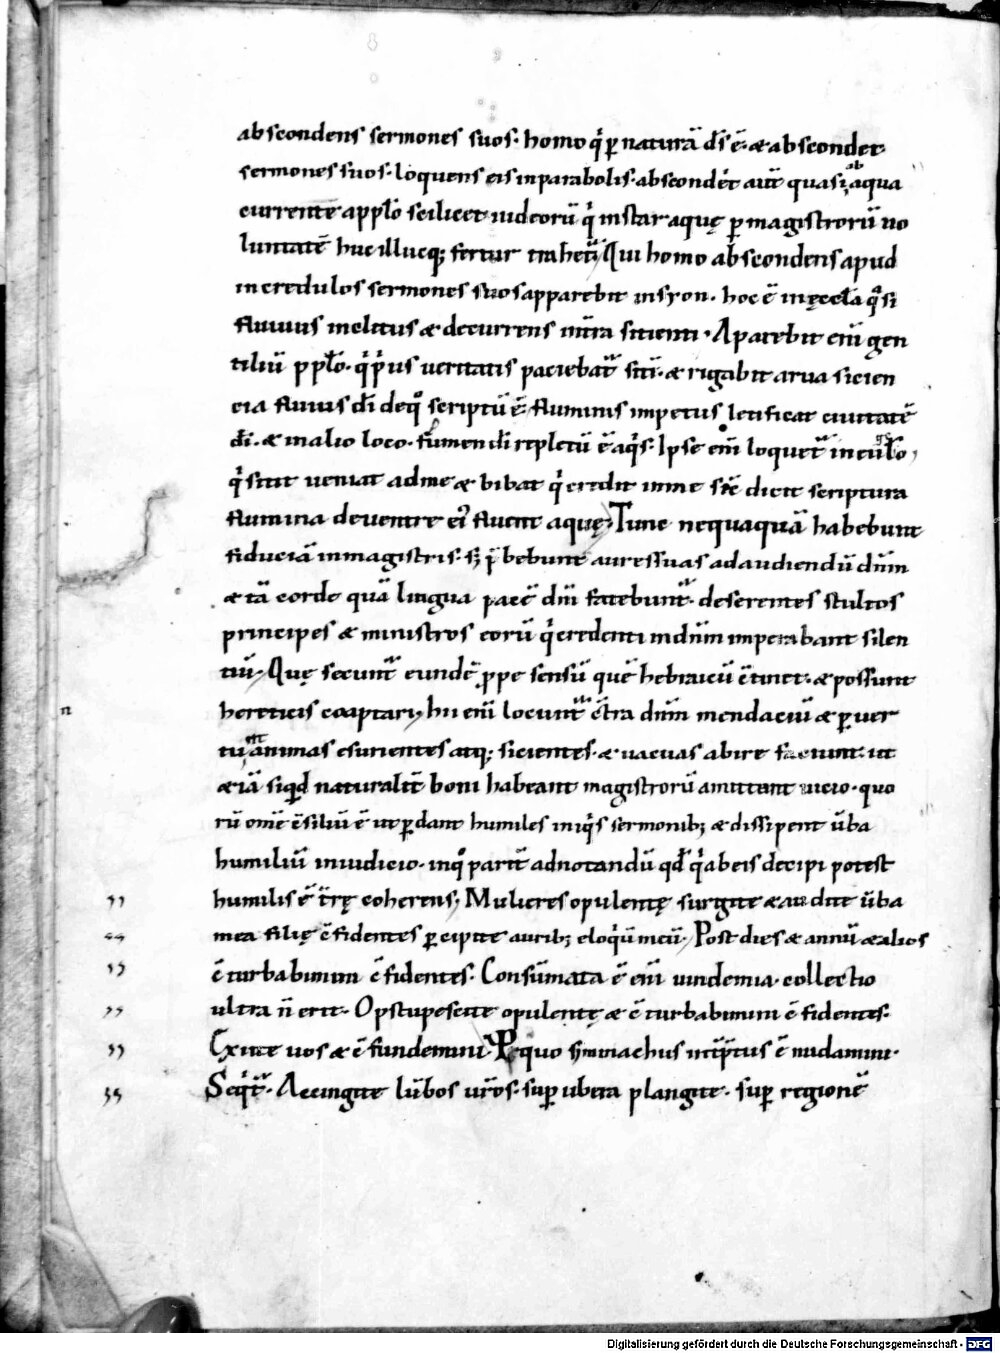 abscondens sermones suos. homo q̇ p̱ naturā ds̄ ē. & abscondet
sermones suos. loquens eis in parabolis. abscondet̄ aut̄ quasi ab aqua
currente appl̄o scilicet iudeorū q̇ instar aquę p̱ magistrorū uo
luntatē huc illucq; fertur trahet̄. Qui homo abscondens apud
incredulos sermones suos apparebit in syon. hoc ē in ęccl̄a q̊si
fluuius inclitus & decurrens in tr̄ra sitienti. Aparebit enī gen
tiliū ppl̄o. q̇ ṗus ueritatis paciebat̄ sitī. & rigabit arua sicien
cia fluuius dī de q̊ scriptū ē. fluminis impetus letificat ciuitatē
dī. & in alio loco. flumen dī repletū ē aq̇s. Ipse enī loquet̄ in eugl̄o,
q̇ sitit ueniat ad me & bibat q̇ credit in me sic̄ dicit scriptura
flumina de uentre eī fluent aquę. Tunc nequaquā habebunt
fiduciā in magistris. s; p̱bebunt aures suas ad audiendū dn̄m
& tā corde quā lingua pacē dn̄i fatebunt̄. deserentes stultos
principes & ministros eorū q̇ credenti in dn̄m imperabant silen
tiū. Quę secunt̄ eundē p̱pe sensū quē hebraicū ētinet. & possunt
hereticis coaptari. hii enī locunt̄ c̄tra dn̄m mendaciū & p̱uer
tunt animas esurientes atq; sicientes. & uacuas abire faciunt. ut
& iā siqd naturalit̄ boni habeant magistrorū amittant uicio. quo
rū om̄e c̄siliū ē ut p̱dant humiles iniq̇s sermonib; & dissipent ūba
humiliū in iudicio. in q̊ part̄ adnotandū qd̄ q̇ ab eis decipi potest
humilis ē tr̄rę coherens. Mulieres opulentę surgite & audite ūba
mea filię c̄fidentes p̱cipite aurib; eloq̇ū meū. Post dies & annū & alios
c̄turbabimini c̄fidentes. Consūmata ē enī uindemia. collectio
ultra n̄ erit. Opstupescite opulentę & c̄turbabimini c̄fidentes.
Exuite uos & c̄fundemini. P̱ quo symmachus int̄p̱tus ē nudamini.
Seq̇t̄. Accingite lūbos ur̄os. sup̱ ubera plangite. sup̱ regionē
n